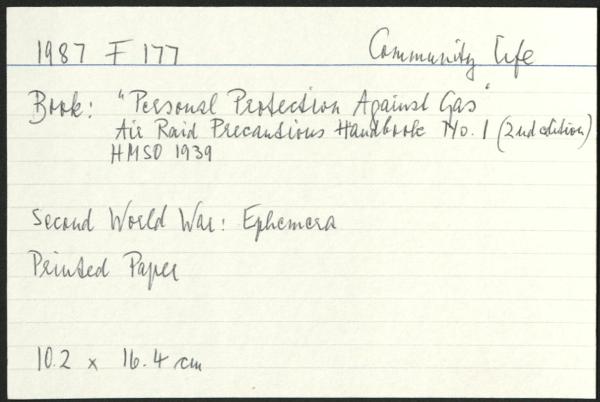 1987 F 177 Community Life
Book: "Personal Protection Against Gas"
Air Raid Precautions Handbook No. 1 (2nd edition)
HMSO 1939
Second World War: Ephemera
Printed Paper
10.2 x 16.4 cm